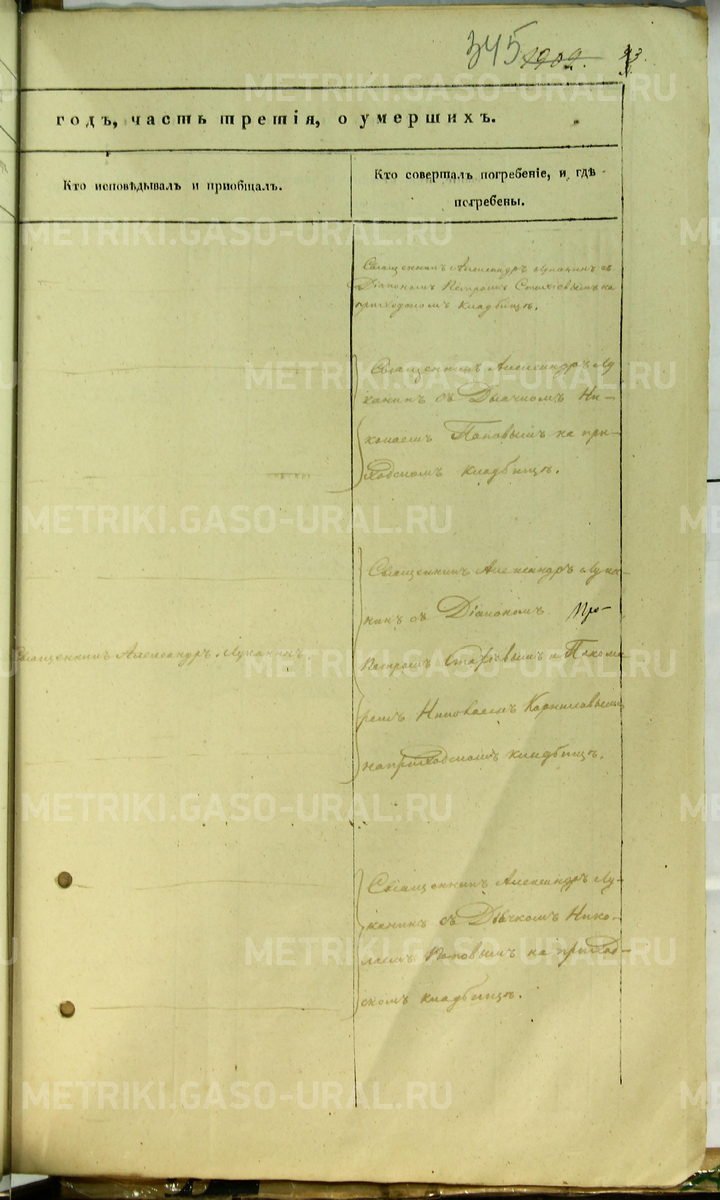 345 1909.
годъ, часть третія, о умершихъ.
Кто исповѣдывалъ и пріобщалъ.
Кто совершалъ погребеніе, и гдѣ
погребены.
Священникъ Александръ Луканинъ съ
Діакономъ Петромъ на
приходскомъ кладбищѣ.
Священникъ Александръ Лу-
канинъ съ Дьячкомъ Ни-
колаемъ Поповымъ на при-
ходскомъ кладбищѣ.
Священникъ Александръ Лука-
нинъ съ Діакономъ
Петромъ и Поном
ремъ Николаемъ Корниловымъ
на приходскомъ кладбищѣ.
Священникъ Александръ Луканинъ.
Священникъ Александръ Лу-
канинъ съ Дьячкомъ Нико-
лаемъ Поповымъ на приход-
скомъ кладбищѣ.
METRIKI.GASO-URAL.RU